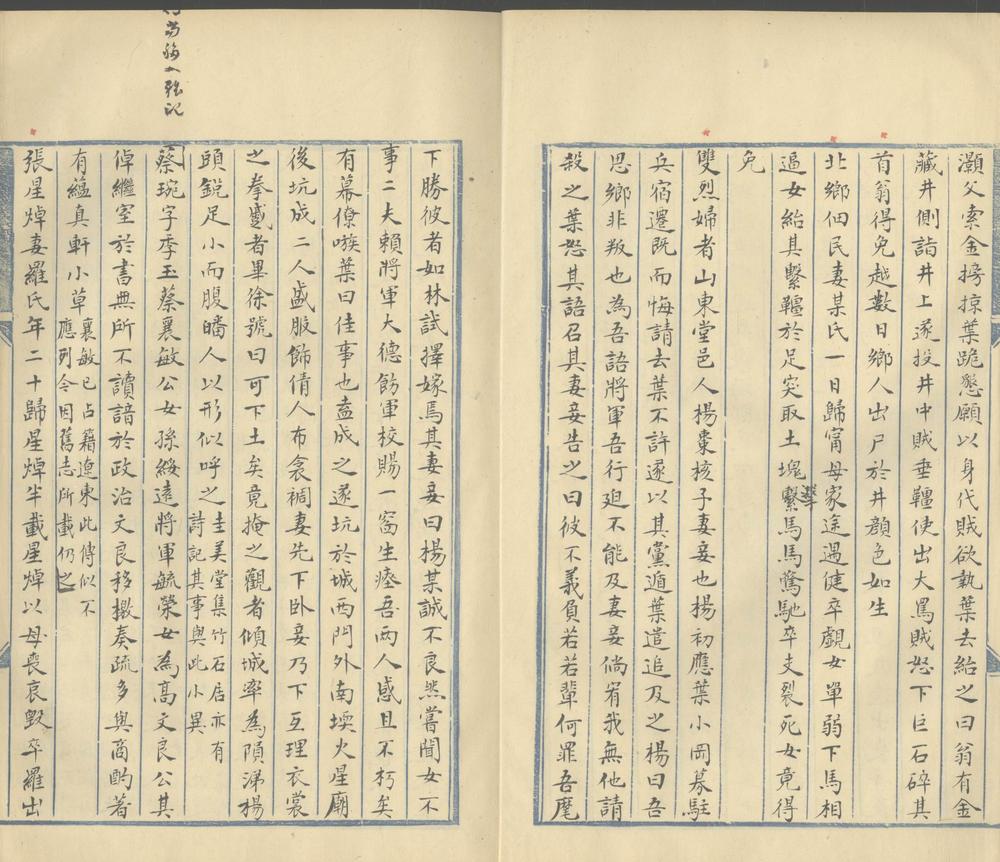 灝父索金搒掠葉跪懇願以身代賊欲執葉去紿之曰翁有金
藏井側詣井上遂投井中賊垂韁使出大罵賊怒下巨石碎其
首翁得免越數日鄉人出尸於井顔色如生
北鄉佃民妻某氏一日歸甯母家途遇健卒覷女單弱下馬相
逼女紿其繫韁於足突取土塊擊馬馬驚馳卒支裂死女竟得
免
雙烈婦者山東堂邑人楊棗核子妻妾也楊初應葉小岡募駐
兵宿遷既而悔請去葉不許遂以其黨遁葉遣追及之楊曰吾
思鄉非叛也為吾語將軍吾行廻不能及妻妾倘宥我無他請
殺之葉怒其語召其妻妾告之曰彼不義負若若輩何罪吾麾
下勝彼者如林試擇嫁焉其妻妾曰楊某誠不良然嘗聞女不
事二夫賴將軍大德飭軍校賜一窩生瘞吾兩人感且不朽矣
有幕僚嗾葉曰佳事也盍成之遂坑於城西門外南堧火星廟
後坑成二人盛服飾倩人布衾裯妻先下卧妾乃下互理衣裳
之拳蹙者畢徐號曰可下土矣竟掩之觀者傾城率為隕涕楊
頭銳足小而腹皤人以形似呼之圭美堂集竹石居亦有
詩記其事與此小異
蔡琬字季玉蔡襄敏公女孫綏遠將軍毓榮女為高文良公其
倬繼室於書無所不讀諳於政治文良移檄奏疏多與商酌著
有藴真軒小草襄敏已占籍遼東此傳似不
應列今因舊志所載仍之
張星焯妻羅氏年二十歸星焯半載星焯以母喪哀毀卒羅出